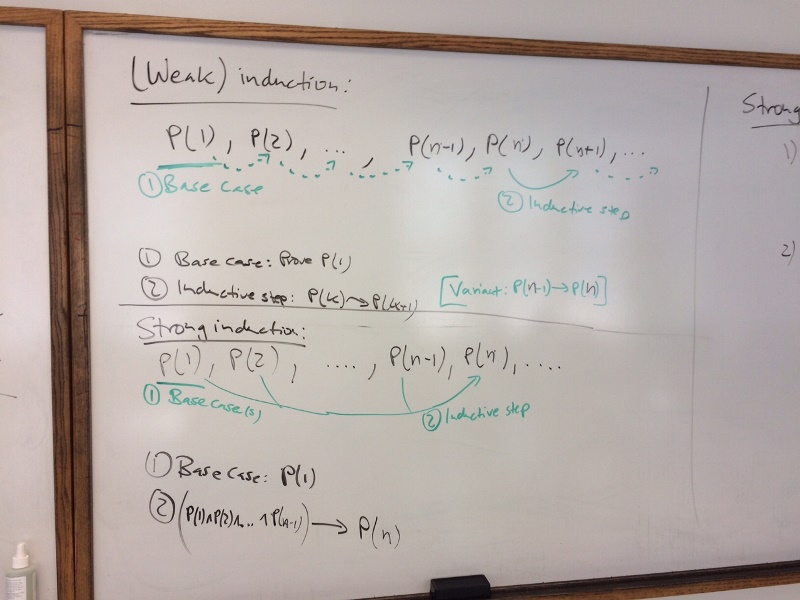 (Weak) induction:
P(1), P(2), ..., P(n-1), P(n), P(n+1), ...
① Base case
② Inductive step
① Base case: Prove P(1)
② Inductive step: P(k) → P(k+1) [Variant: P(n-1) → P(n)]
Strong induction:
P(1), P(2), ...., P(n-1), P(n), ....
① Base case(s)
② Inductive step
① Base case: P(1)
② (P(1)∧P(2)∧...∧P(n-1)) → P(n)
Strong
1)
2)